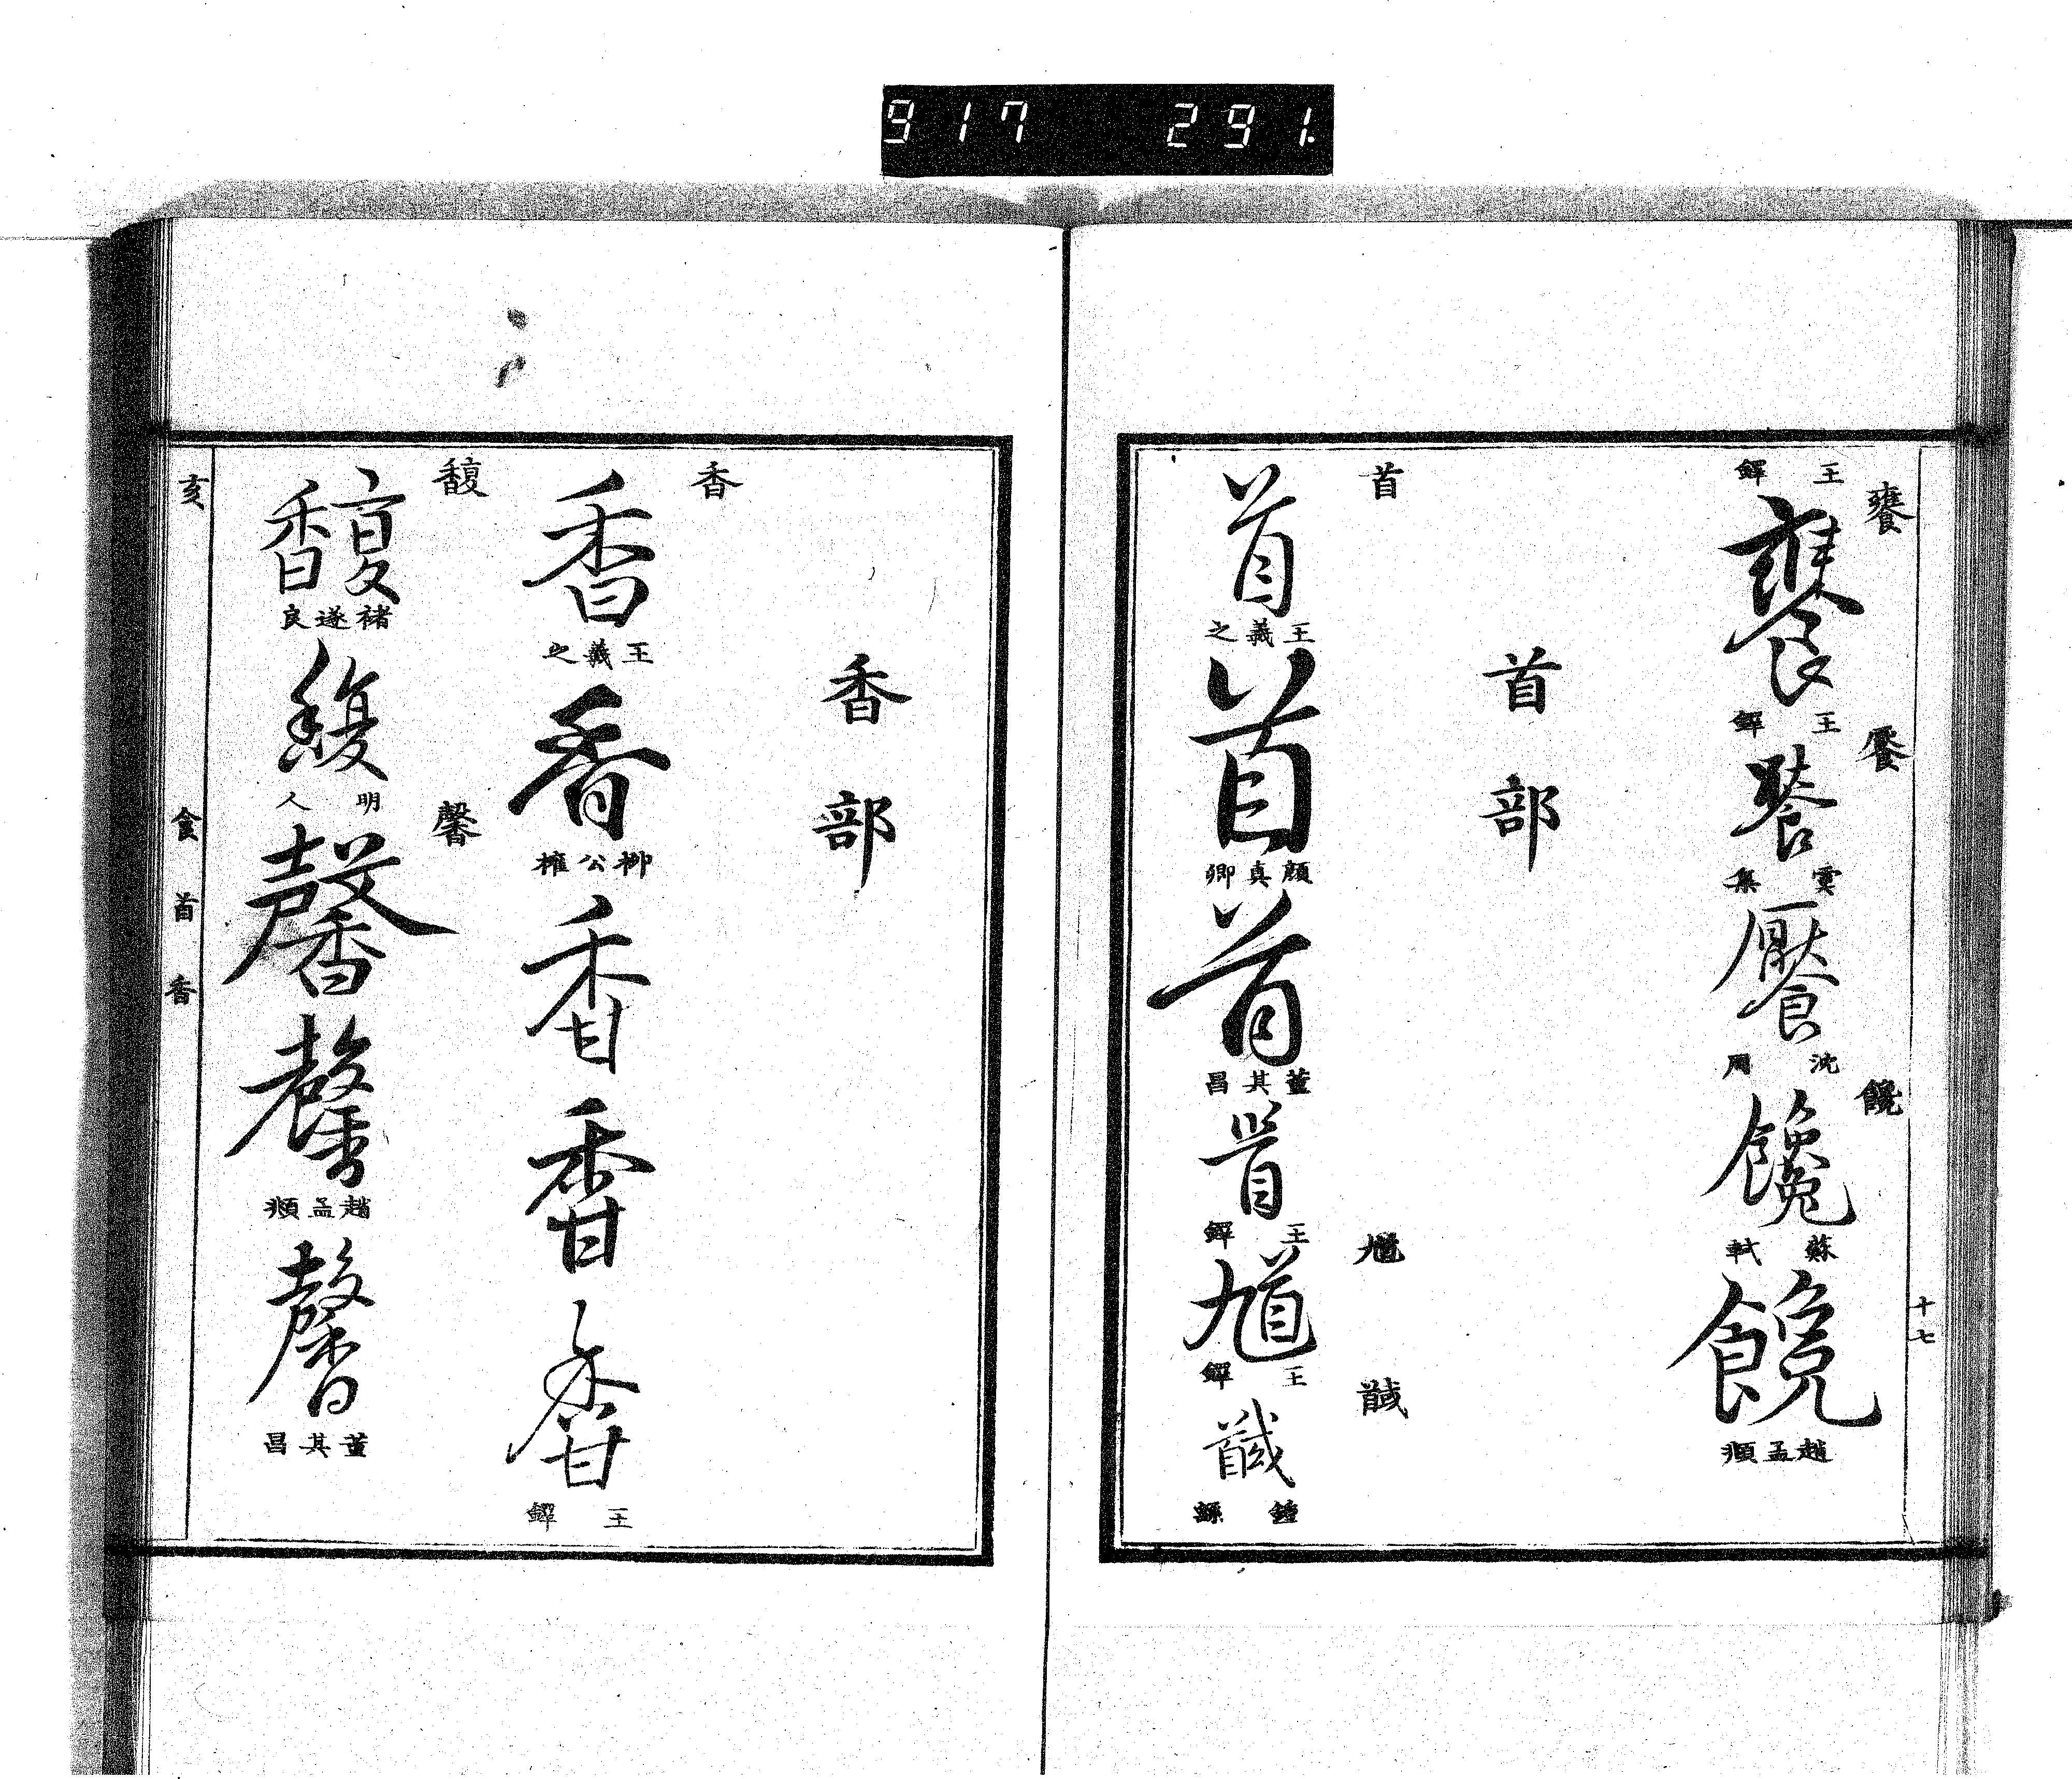 917 291.
饔 饜 饞
王鐸
饔
王鐸
饜
雲集
饜
沈周
饞
蘇軾
饞
趙孟頫
十七
首部
首 馗 馘
首
王羲之
首
顏真卿
首
董其昌
首
王鐸
馗
王鐸
馘
鍾繇
香部
香
香
王羲之
香
柳公權
香
香
香
王鐸
馥 馨
馥
褚遂良
馥
明人
馨
馨
趙孟頫
馨
董其昌
亥 食 首 香